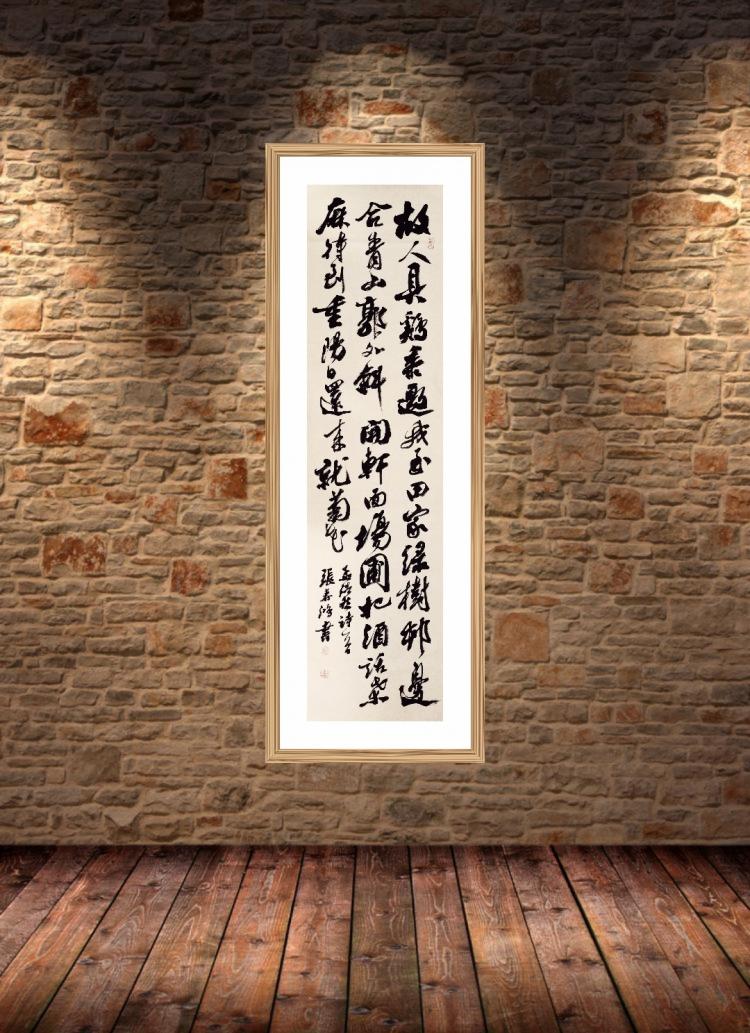 故人具鷄黍邀我至田家緑樹邨邊
合青山郭外斜開軒面場圃把酒話桒
麻待到重陽日還来就菊花
孟浩然詩一首
張書